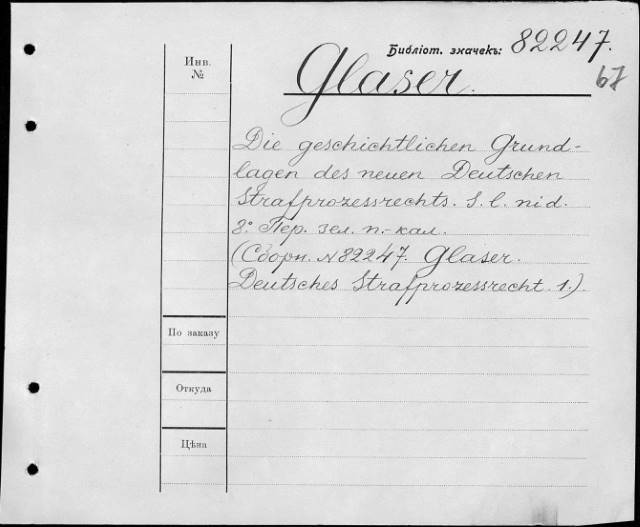 Библіот. значекъ: 82247.
67
Glaser.
Инв.
№
Die geschichtlichen Grund-
lagen des neuen Deutschen
Strafprozessrechts. S. l. n i d.
8° Пер. зел. п.-кал.
(Сборн. № 82247. Glaser.
Deutsches Strafprozessrecht. 1.)
По заказу
Откуда
Цѣна